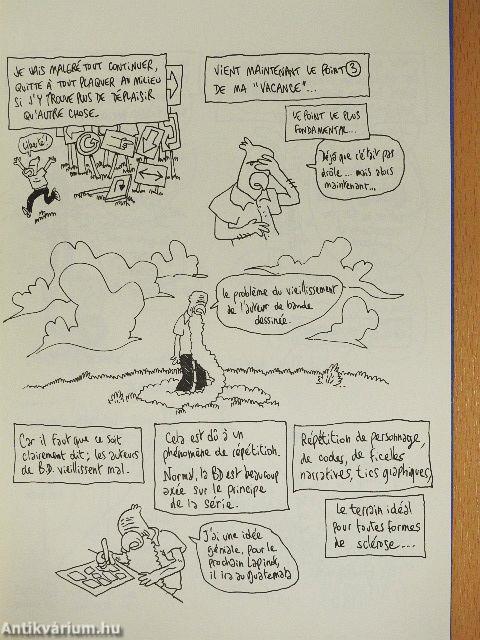 JE VAIS MALGRÉ TOUT CONTINUER,
QUITTE À TOUT PLAQUER AU MILIEU
SI J'Y TROUVE PLUS DE DÉPLAISIR
QU'AUTRE CHOSE.
Liberté!
VIENT MAINTENANT LE POINT ③
DE MA "VACANCE"...
LE POINT LE PLUS
FONDAMENTAL...
Déjà que c'était pas
drôle... mais alors
maintenant...
le problème du vieillissement
de l'auteur de bande
dessinée.
Car il faut que ce soit
clairement dit; les auteurs
de B.D. vieillissent mal.
Cela est dû à un
phénomène de répétition.
Normal, la BD est beaucoup
axée sur le principe
de la série.
Répétition de personnage,
de codes, de ficelles
narratives, tics graphiques,
Le terrain idéal
pour toutes formes
de sclérose....
J'ai une idée
géniale, pour le
prochain Lapinot,
il ira au Guatemala
Antikvárium.hu